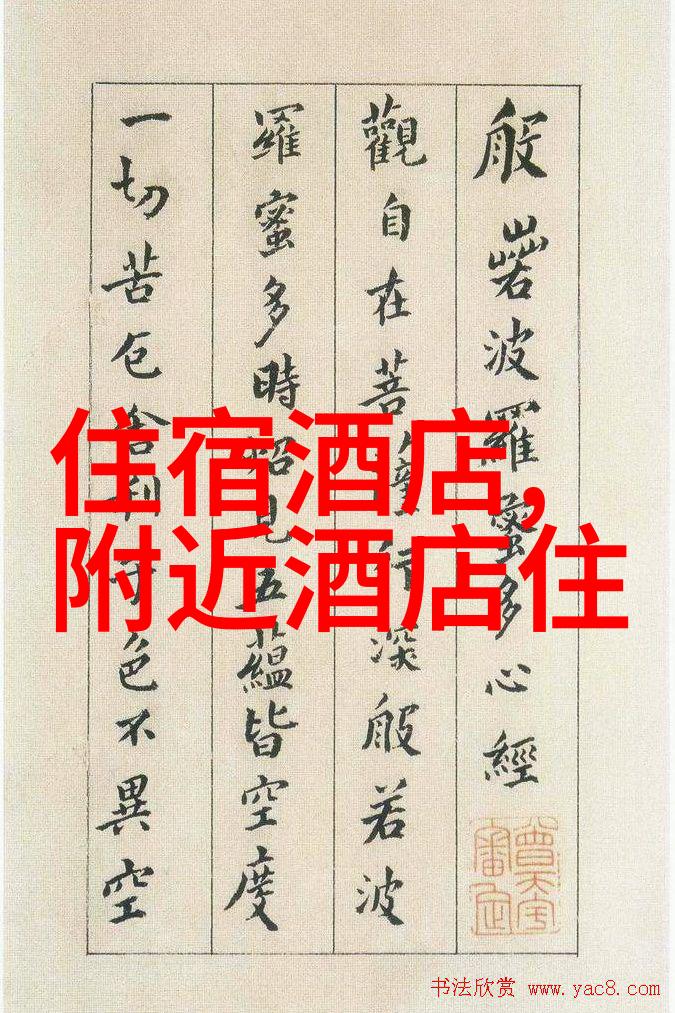 般若波羅蜜多心經
觀自在菩薩行深般若波
羅蜜多時照見五蘊皆空度
一切苦厄舍利子色不異空
住宿酒店,
附近酒店住
书法欣赏 www.yac8.com